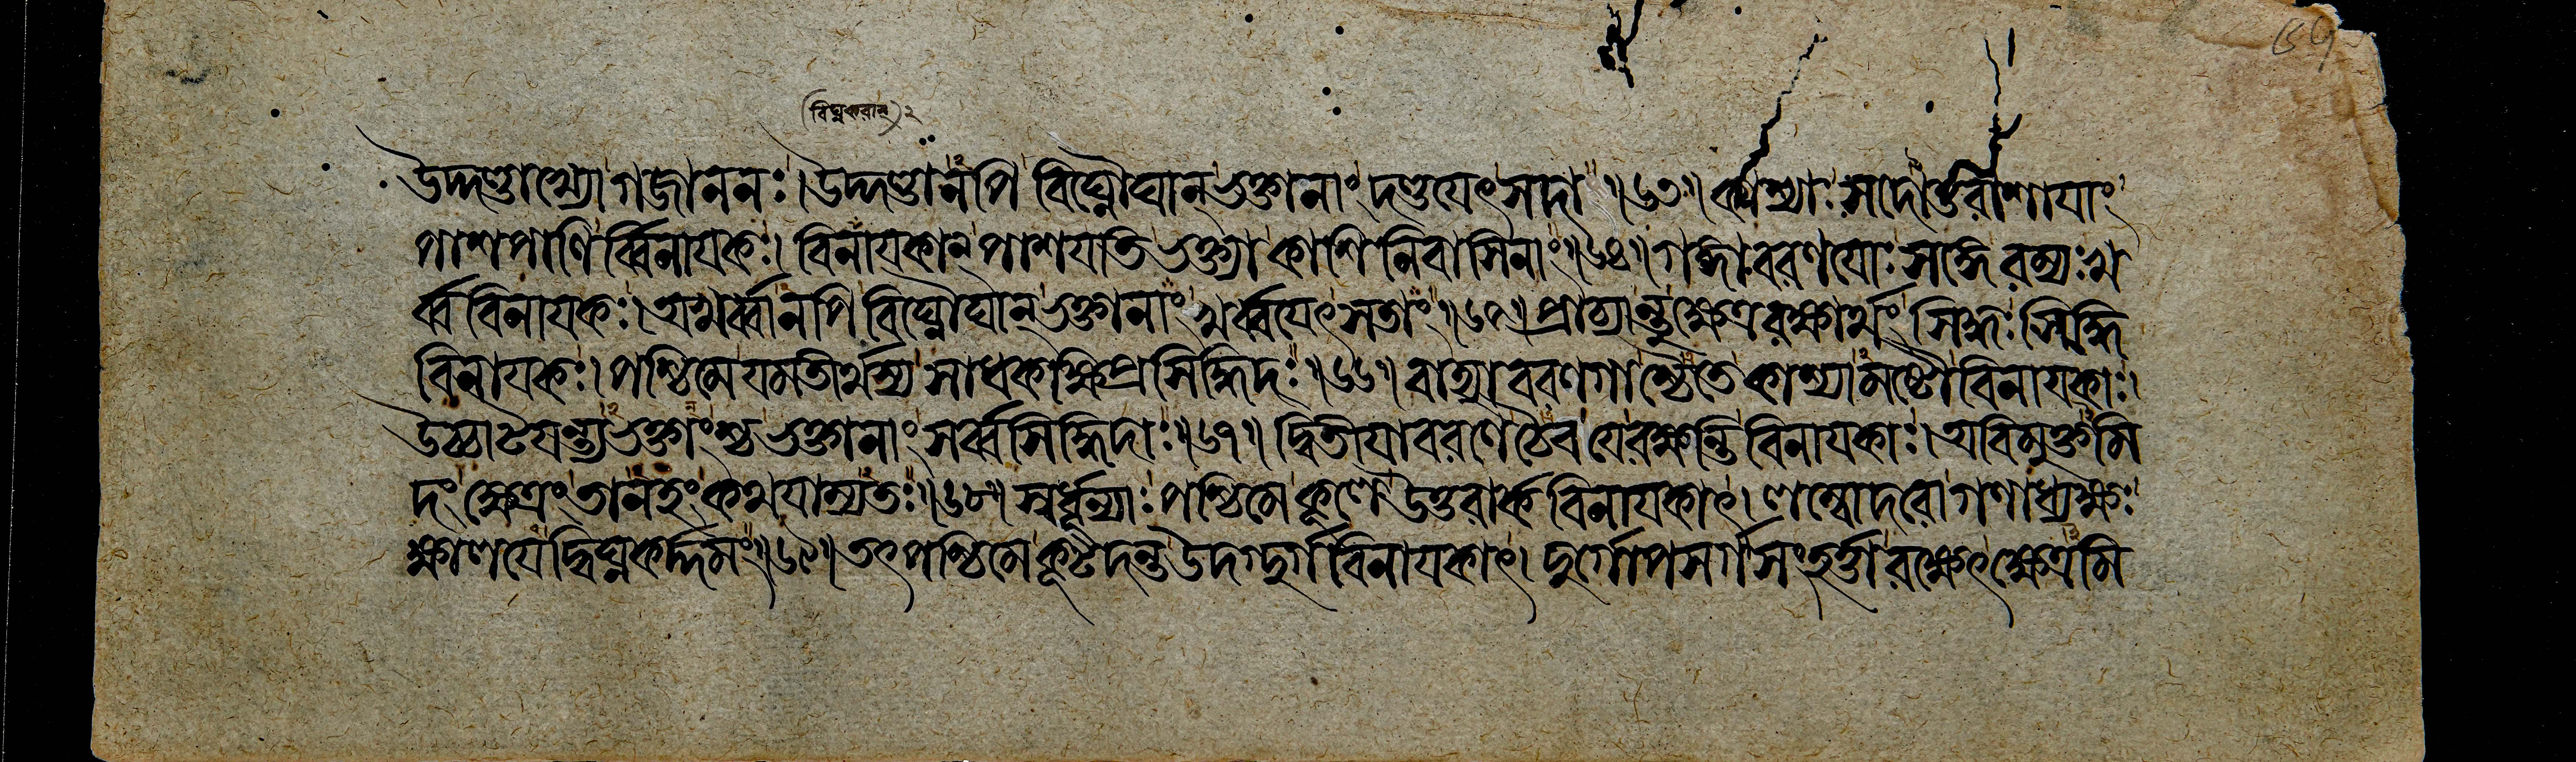 (বিঘ্নকরান্)২
উদ্দণ্ডাখ্যো গজাননঃ। উদ্দণ্ডানপি বিঘ্নৌঘান্ ভক্তানাং দণ্ডয়েৎ সদা॥৬৩॥ কাশ্যাঃ সদোত্তরাশায়াং
পাশপাণির্ব্বিনায়কঃ। বিনায়কান্ পাশয়তি ভক্ত্যা কাশিনিবাসিনাং॥৬৪॥ গঙ্গাবরণয়োঃ সঙ্গে রম্যঃ খ
র্ব্ববিনায়কঃ। অখর্ব্বানপি বিঘ্নৌঘান্ ভক্তানাং খর্ব্বয়েৎ সতাং॥৬৫॥ প্রাচ্যান্তু ক্ষেত্ররক্ষার্থং সিদ্ধঃ সিদ্ধি
বিনায়কঃ। পশ্চিমে যমতীর্থস্য সাধকক্ষিপ্রসিদ্ধিদঃ॥৬৬॥ বাহ্যাবরণগাশ্চৈতে কাশ্যামষ্টৌ বিনায়কাঃ।
উচ্চাটয়ন্ত্যভক্তাংশ্চ ভক্তানাং সর্ব্বসিদ্ধিদাঃ॥৬৭॥ দ্বিতীয়াবরণে চৈব যে রক্ষন্তি বিনায়কাঃ। অবিমুক্তমি
দং ক্ষেত্রং তানহং কথয়াম্যতঃ॥৬৮॥ স্বর্ধুন্যাঃ পশ্চিমে কূলে উত্তরার্কবিনায়কাৎ। লম্বোদরো গণাধ্যক্ষঃ
ক্ষালয়েদ্বিঘ্নকর্দ্দমং॥৬৯॥ তৎপশ্চিমে কূটদন্ত উদগ্দুর্গবিনায়কাৎ। দুর্গোপসর্গসংহর্ত্তা রক্ষেৎ ক্ষেত্রমি